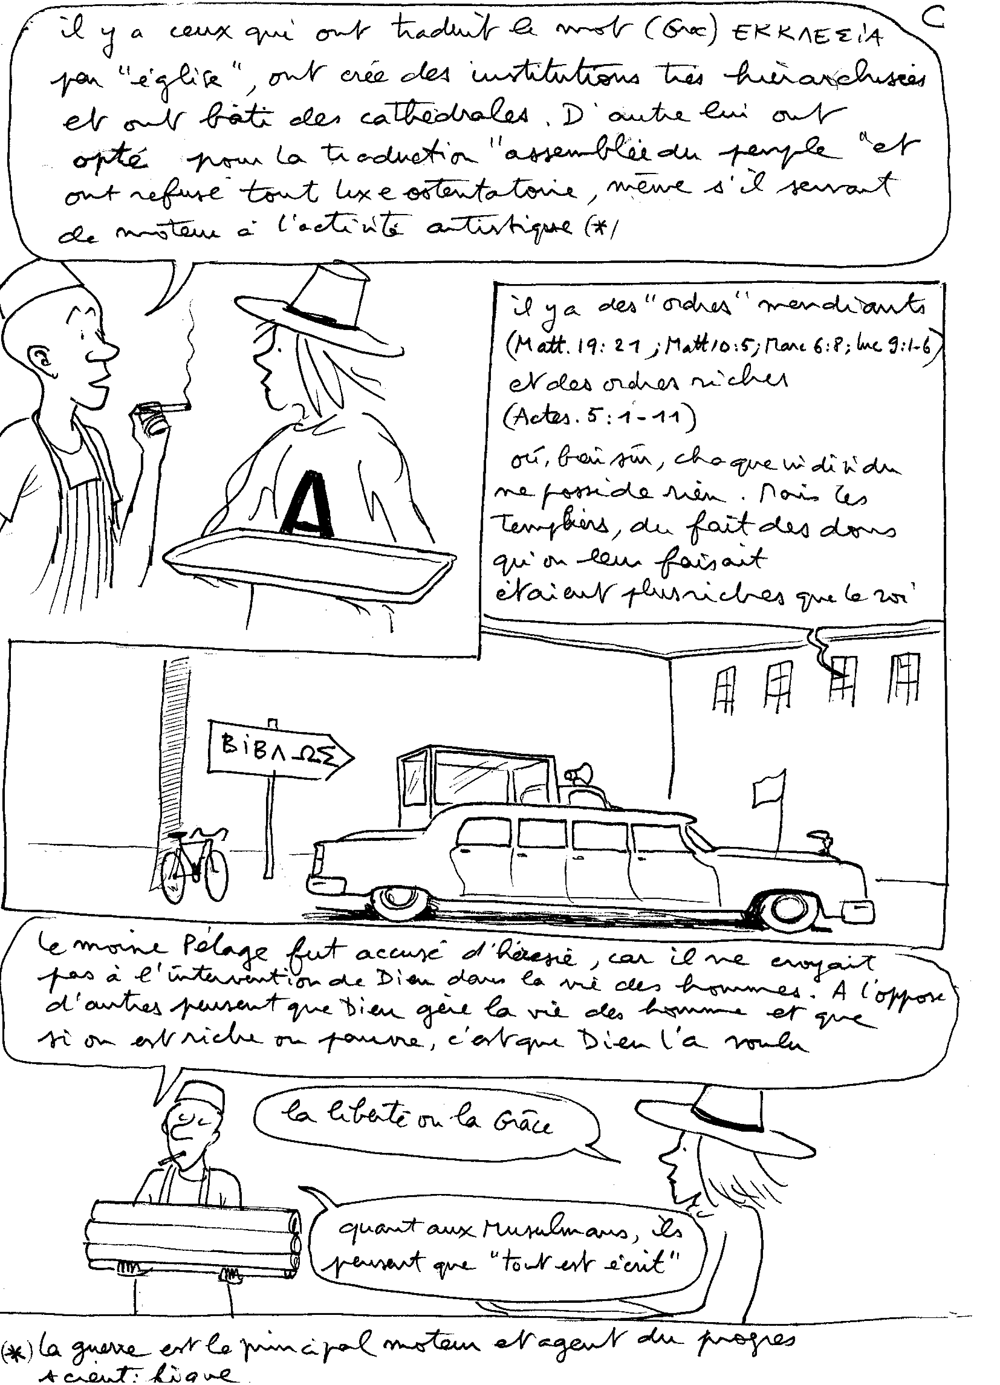 C
il y a ceux qui ont traduit le mot (Grec) ΕΚΚΛΕΣίΑ
par "église", ont crée des institutions très hiérarchisées
et ont bâti des cathédrales. D'autre lui ont
opté pour la traduction "assemblée du peuple" et
ont refusé tout luxe ostentatoire, même s'il servait
de moteur à l'activité artistique (*)
il y a des "ordres" mendiants
(Matt. 19: 21 ; Matt 10:5; Marc 6:8; Luc 9:1-6)
et des ordres riches
(Actes. 5:1-11)
où, bien sûr, chaque individu
ne possède rien. Mais les
Templiers, du fait des dons
qu'on leur faisait
étaient plus riches que le roi
A
ΒiΒΛΩΣ
le moine Pélage fut accusé d'hérésie, car il ne croyait
pas à l'intervention de Dieu dans la vie des hommes. A l'opposé
d'autres pensent que Dieu gère la vie des homme et que
si on est riche ou pauvre, c'est que Dieu l'a voulu
la liberté ou la Grâce
quant aux Musulmans, ils
pensent que "tout est écrit"
(*) la guerre est le principal moteur et agent du progres
scientifique